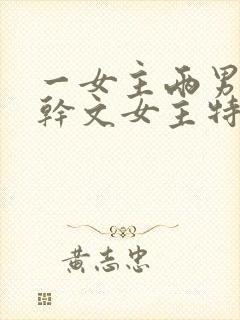 一女主两男
幹文女主特
黄志忠